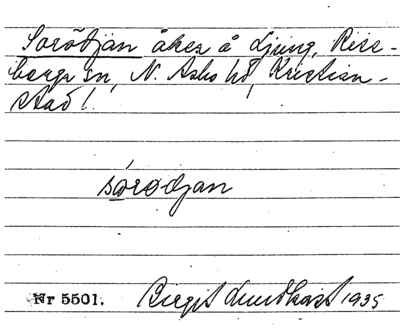 Sorödjan åker å Ljung, Rise-
berga sn, N. Åsbo hd, Kristian-
stad l.
sorodjan
Nr 5501. Birgit Lundkvist 1935